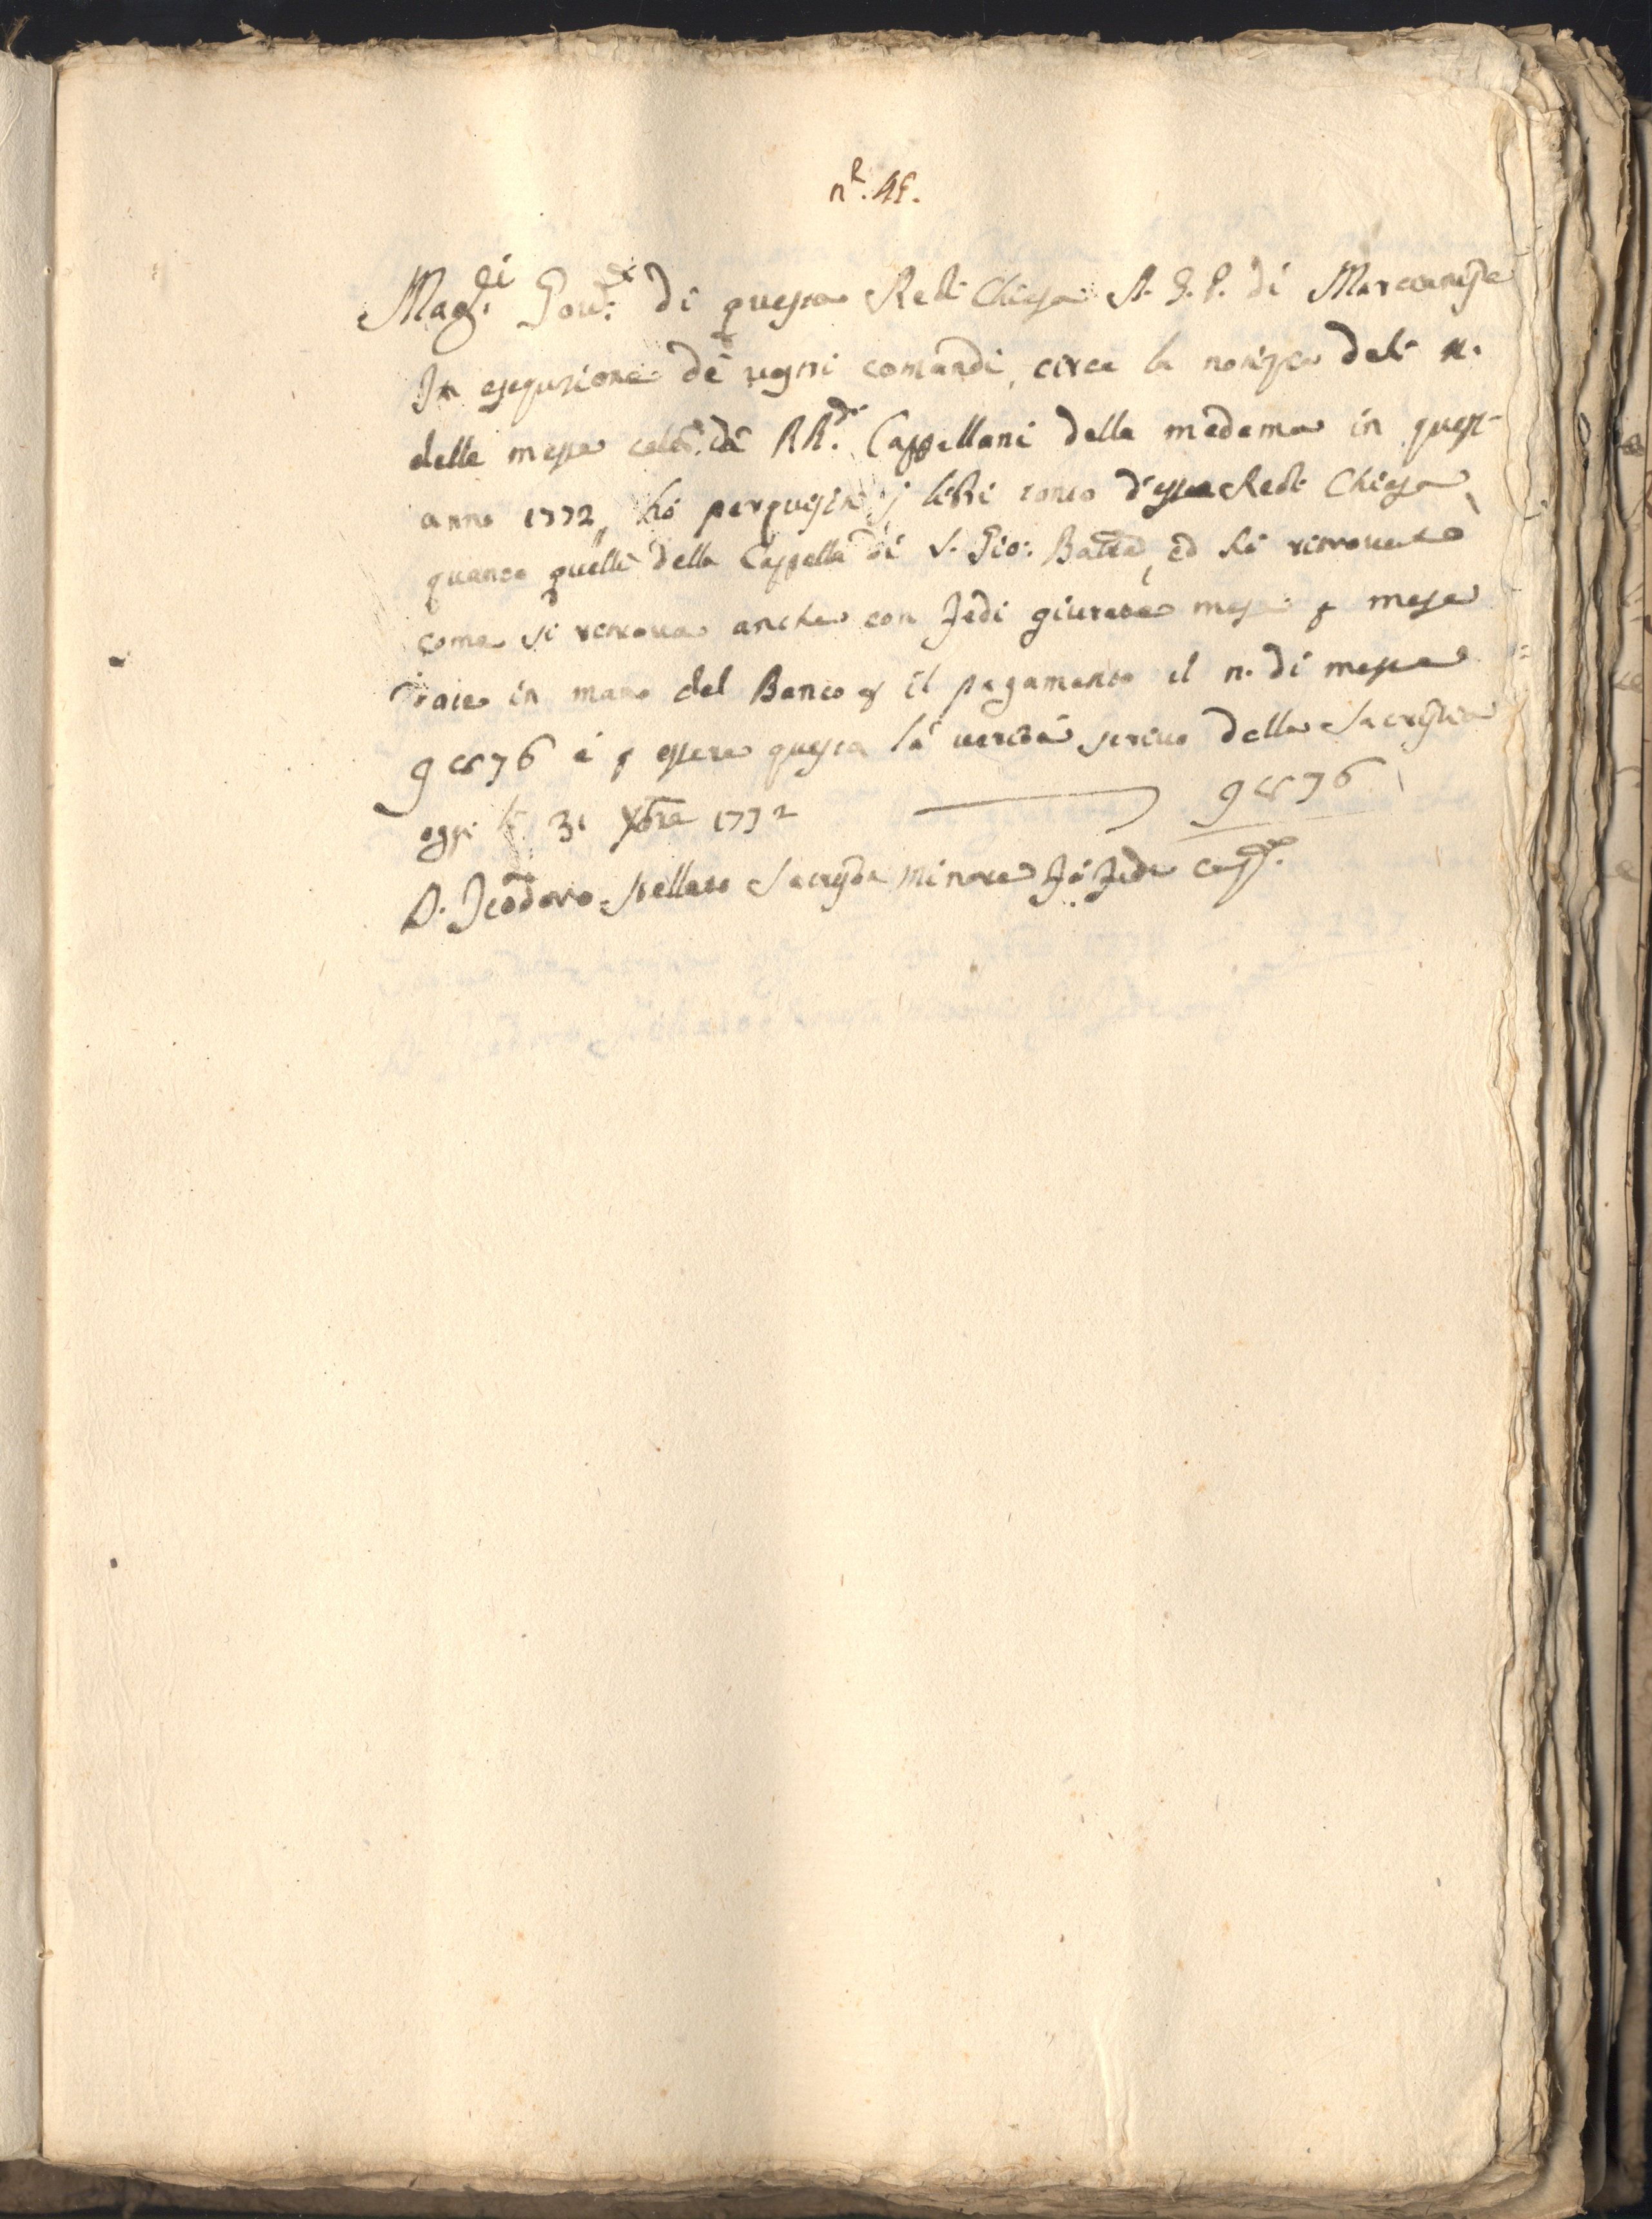 nR. 45.
Mag.ci Gov.ri di questa Real Chiesa A. G. P. di Marcianise
In esequzione de vostri comandi, circa la notizia del n.
delle messe celeb. da RR.di Cappellani della medema in quest'
anno 1772, hò perquisiti j libri tanto d'essa Real Chiesa,
quanto quelli della Cappella di S. Gio: Batta, ed hò ritrovato
come si ritrova anche con fedi giurate mese p mese
in mano del Banco p il pagamento il n. di messe
9576 e p essere questa la verità scrivo dalla Sacristia
oggi li 31 Xbre 1772 9576
D. Teodoro Stellato Sacrista minore fò fede